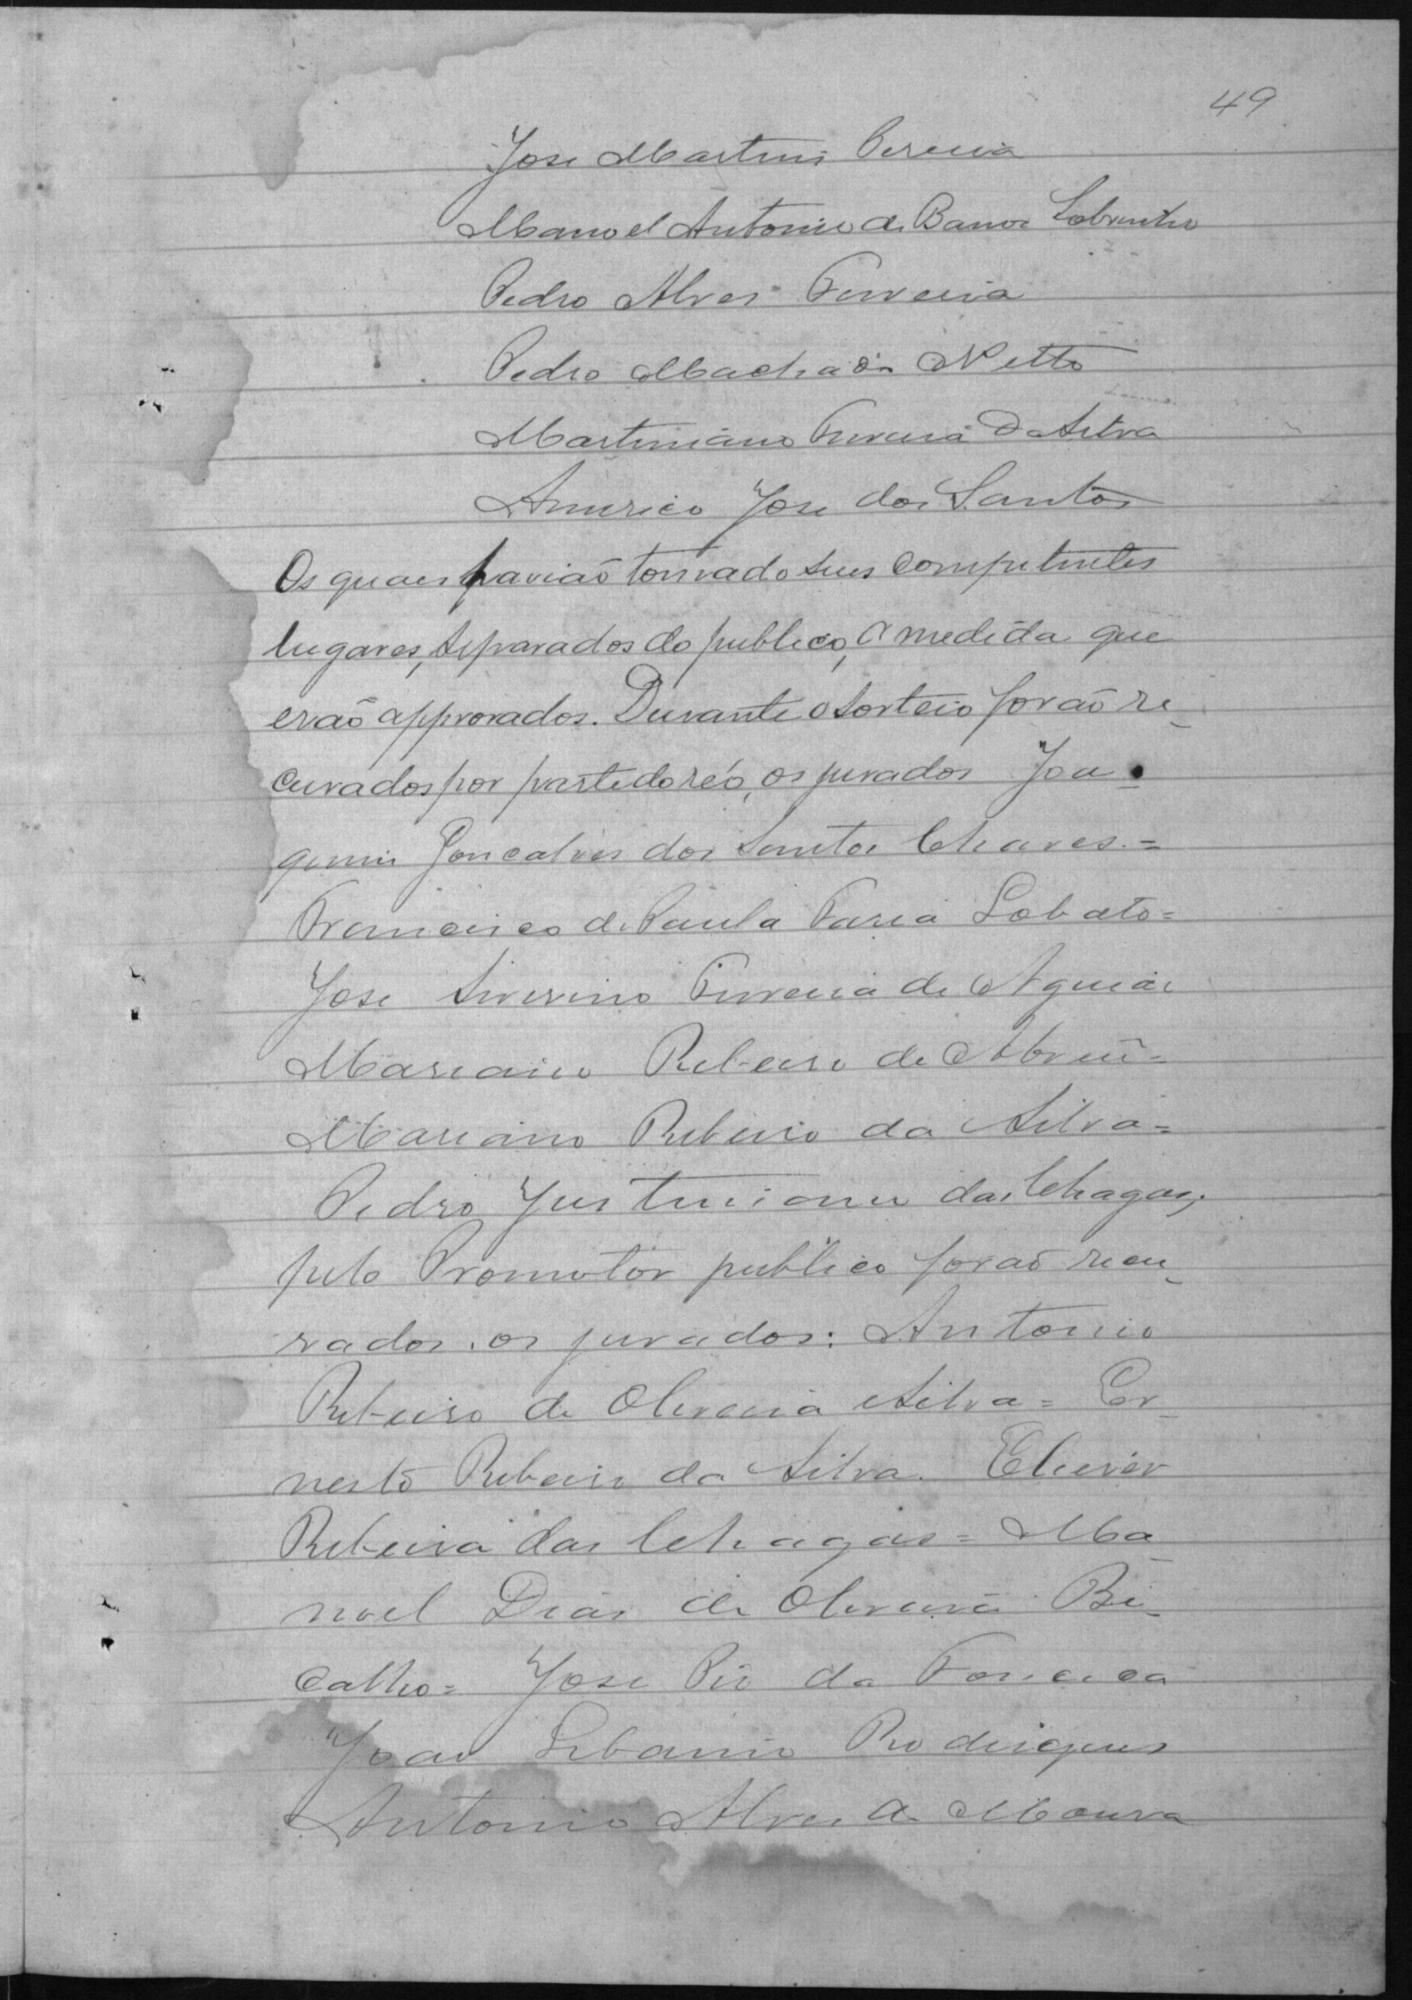 49
Jose Martins Pereira
Manoel Antonio de Barros Sobrinho
Pedro Alves Ferreira
Pedro Machado Netto
Martiniano Ferreira da Silva
Americo Jose dos Santos
Os quaes havião tomado seus competentes
lugares, separados do publico, a medida que
erão approvados. Durante o sorteio forão re_
cusados por parte do réo, os jurados Joa_
quim Gonçalves dos Santos Chaves. =
Francisco de Paula Faria Lobato =
Jose Severino Ferreira de Aguiar
Mariano Ribeiro de Abreu =
Mariano Ribeiro da Silva =
Pedro Justiniano das Chagas,
pelo Promotor publico forão recu_
zados, os jurados: Antonio
Ribeiro de Oliveira e Silva = Er_
nesto Ribeiro da Silva. Eliezer
Ribeiro das Chagas = Ma_
noel Dias de Oliveira Bi_
calho = Jose Pio da Fonseca
Joao Libanio Rodrigues
Antonio Alves de Moura